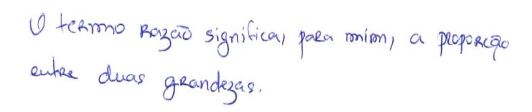 O termo Razão significa, para mim, a proporção
entre duas grandezas.